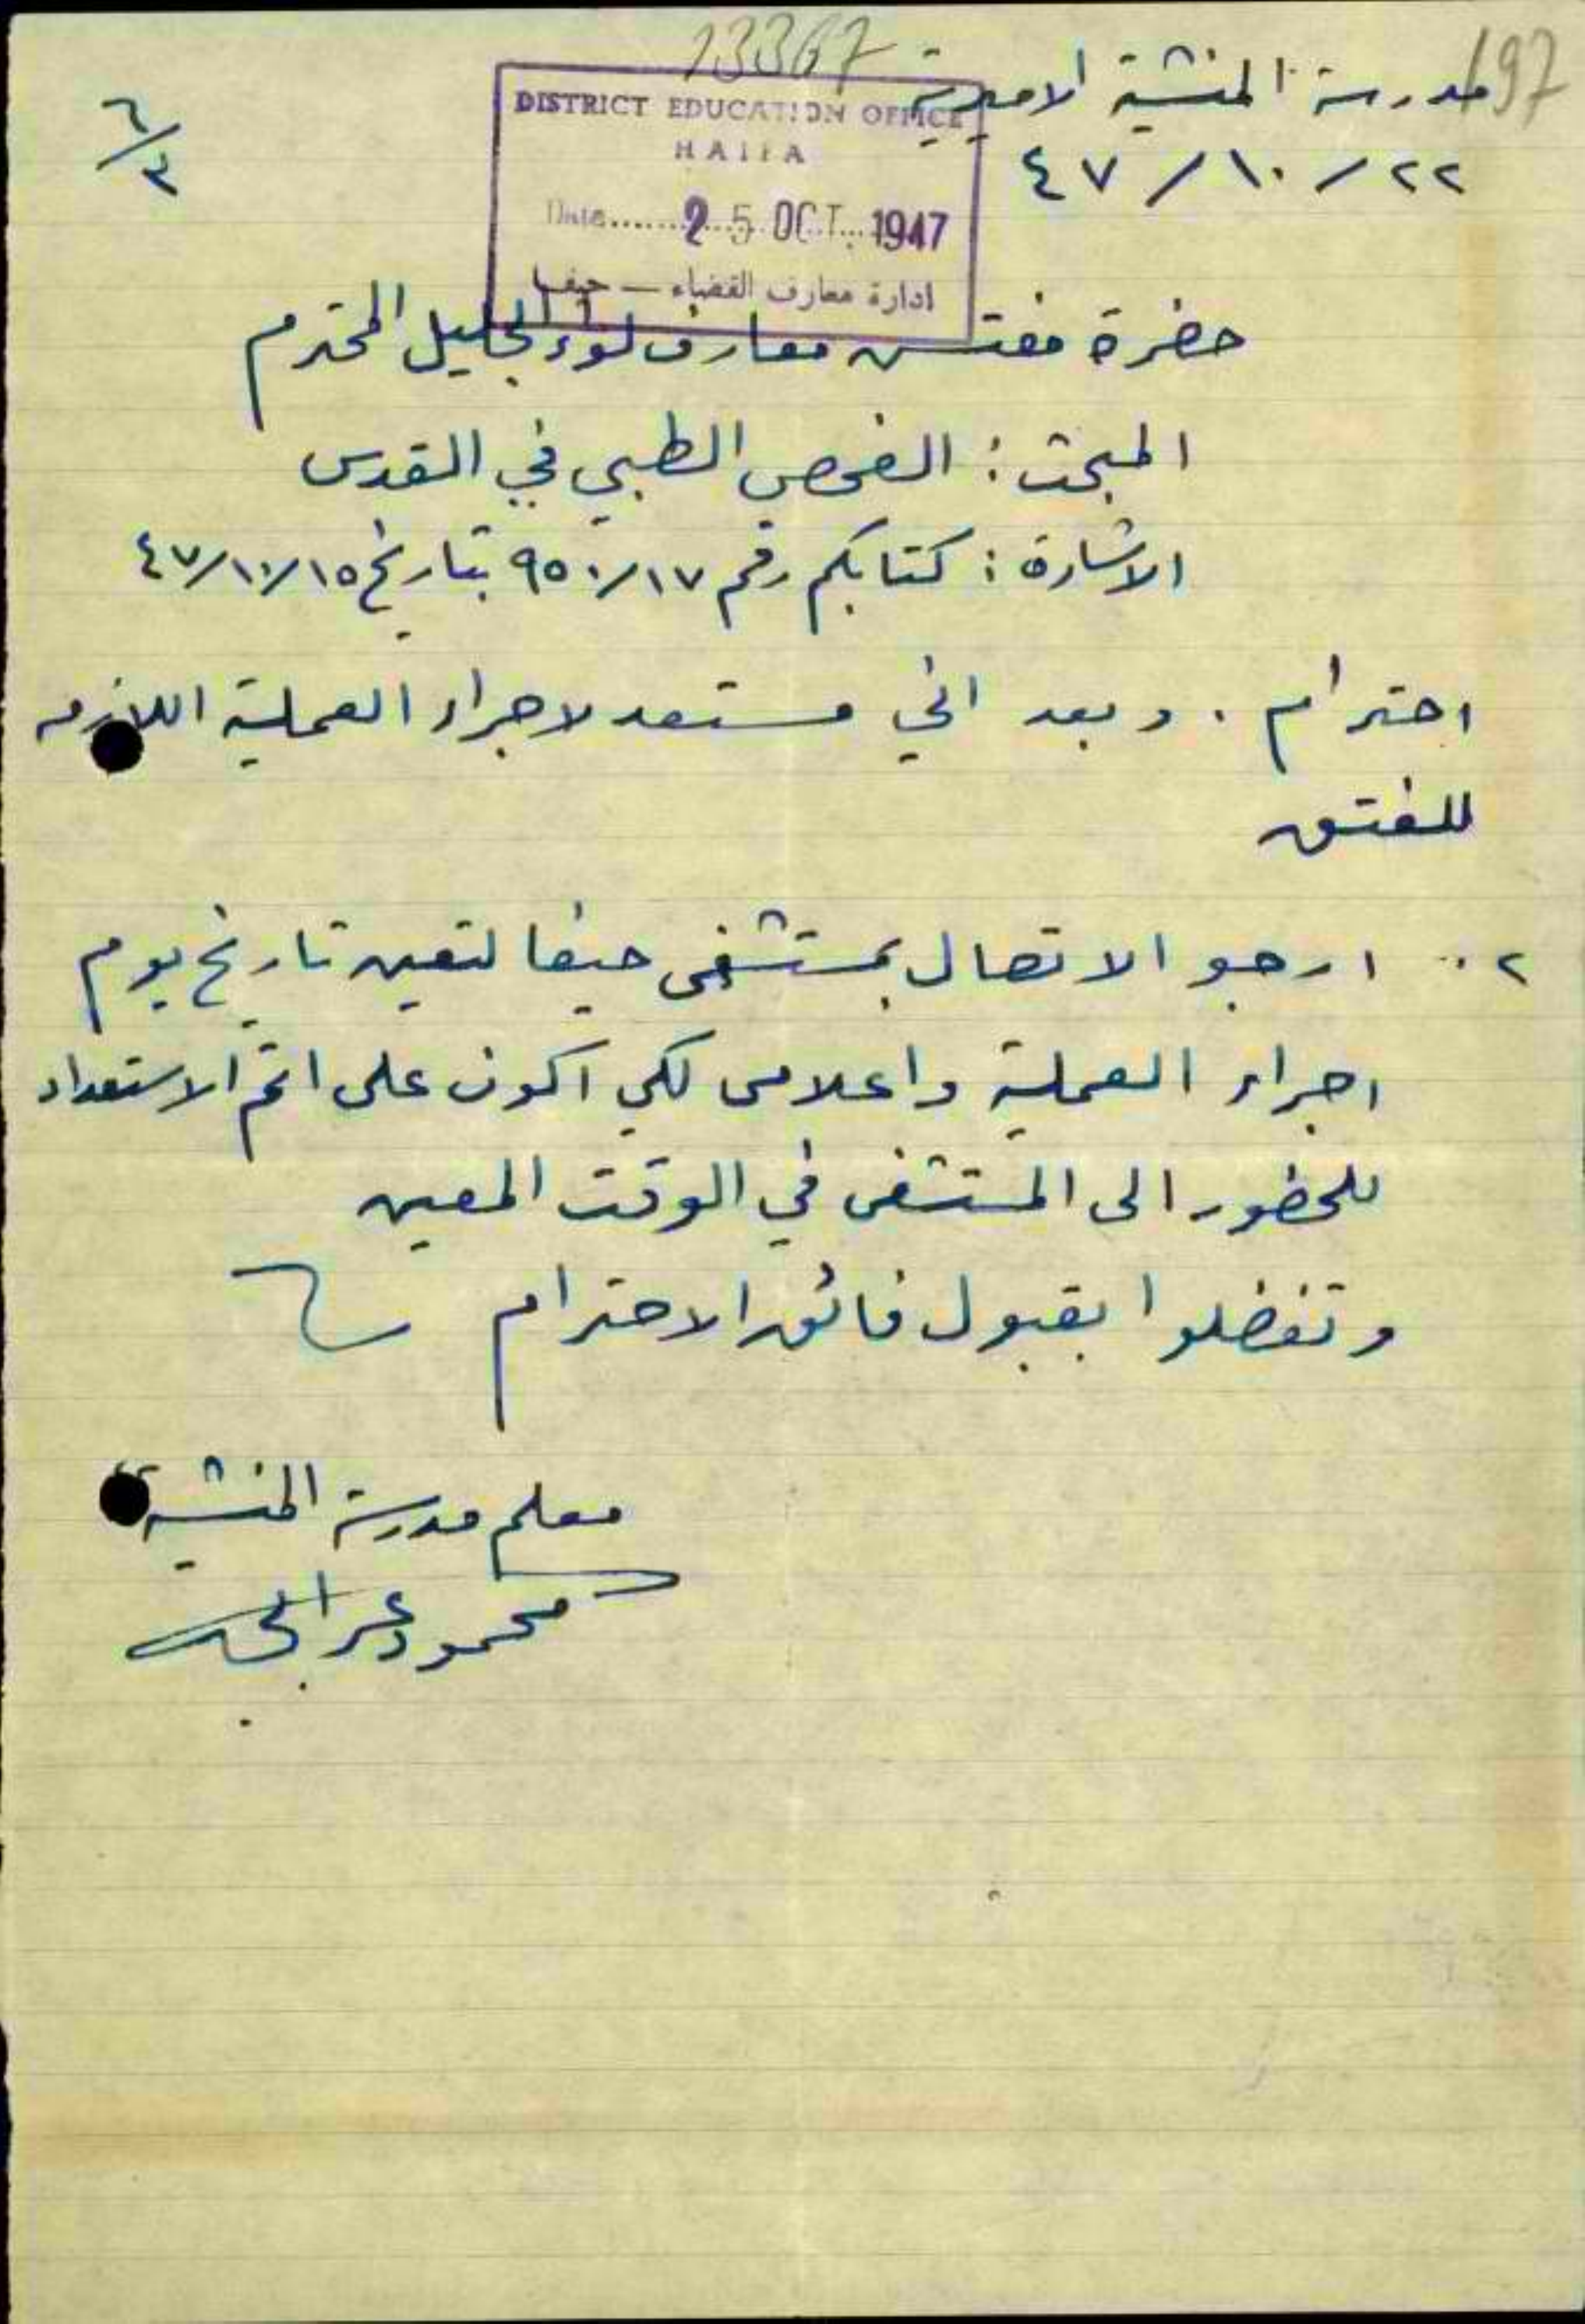 13367
197
مدرسة المنشية الاميرية
٢٢/١٠/٤٧
٦/٣
DISTRICT EDUCATION OFFICE
HAIFA
Date.......25 OCT. 1947
ادارة معارف القضاء — حيفا
حضرة مفتش معارف لواء الجليل المحترم
المبحث: الفحص الطبي في القدس
الاشارة: كتابكم رقم ٩٥٠/١٧ بتاريخ ٤٧/١٠/١٥
احترام. وبعد اني مستعد لاجراء العملية اللازمه
للفتق
٢. ارجو الاتصال بمستشفى حيفا لتعين تاريخ يوم
اجراء العملية واعلامي لكي اكون على اتم الاستعداد
للحضور الى المستشفى في الوقت المعين
وتفضلوا بقبول فائق الاحترام
معلم مدرسة المنشية
محمود عمر